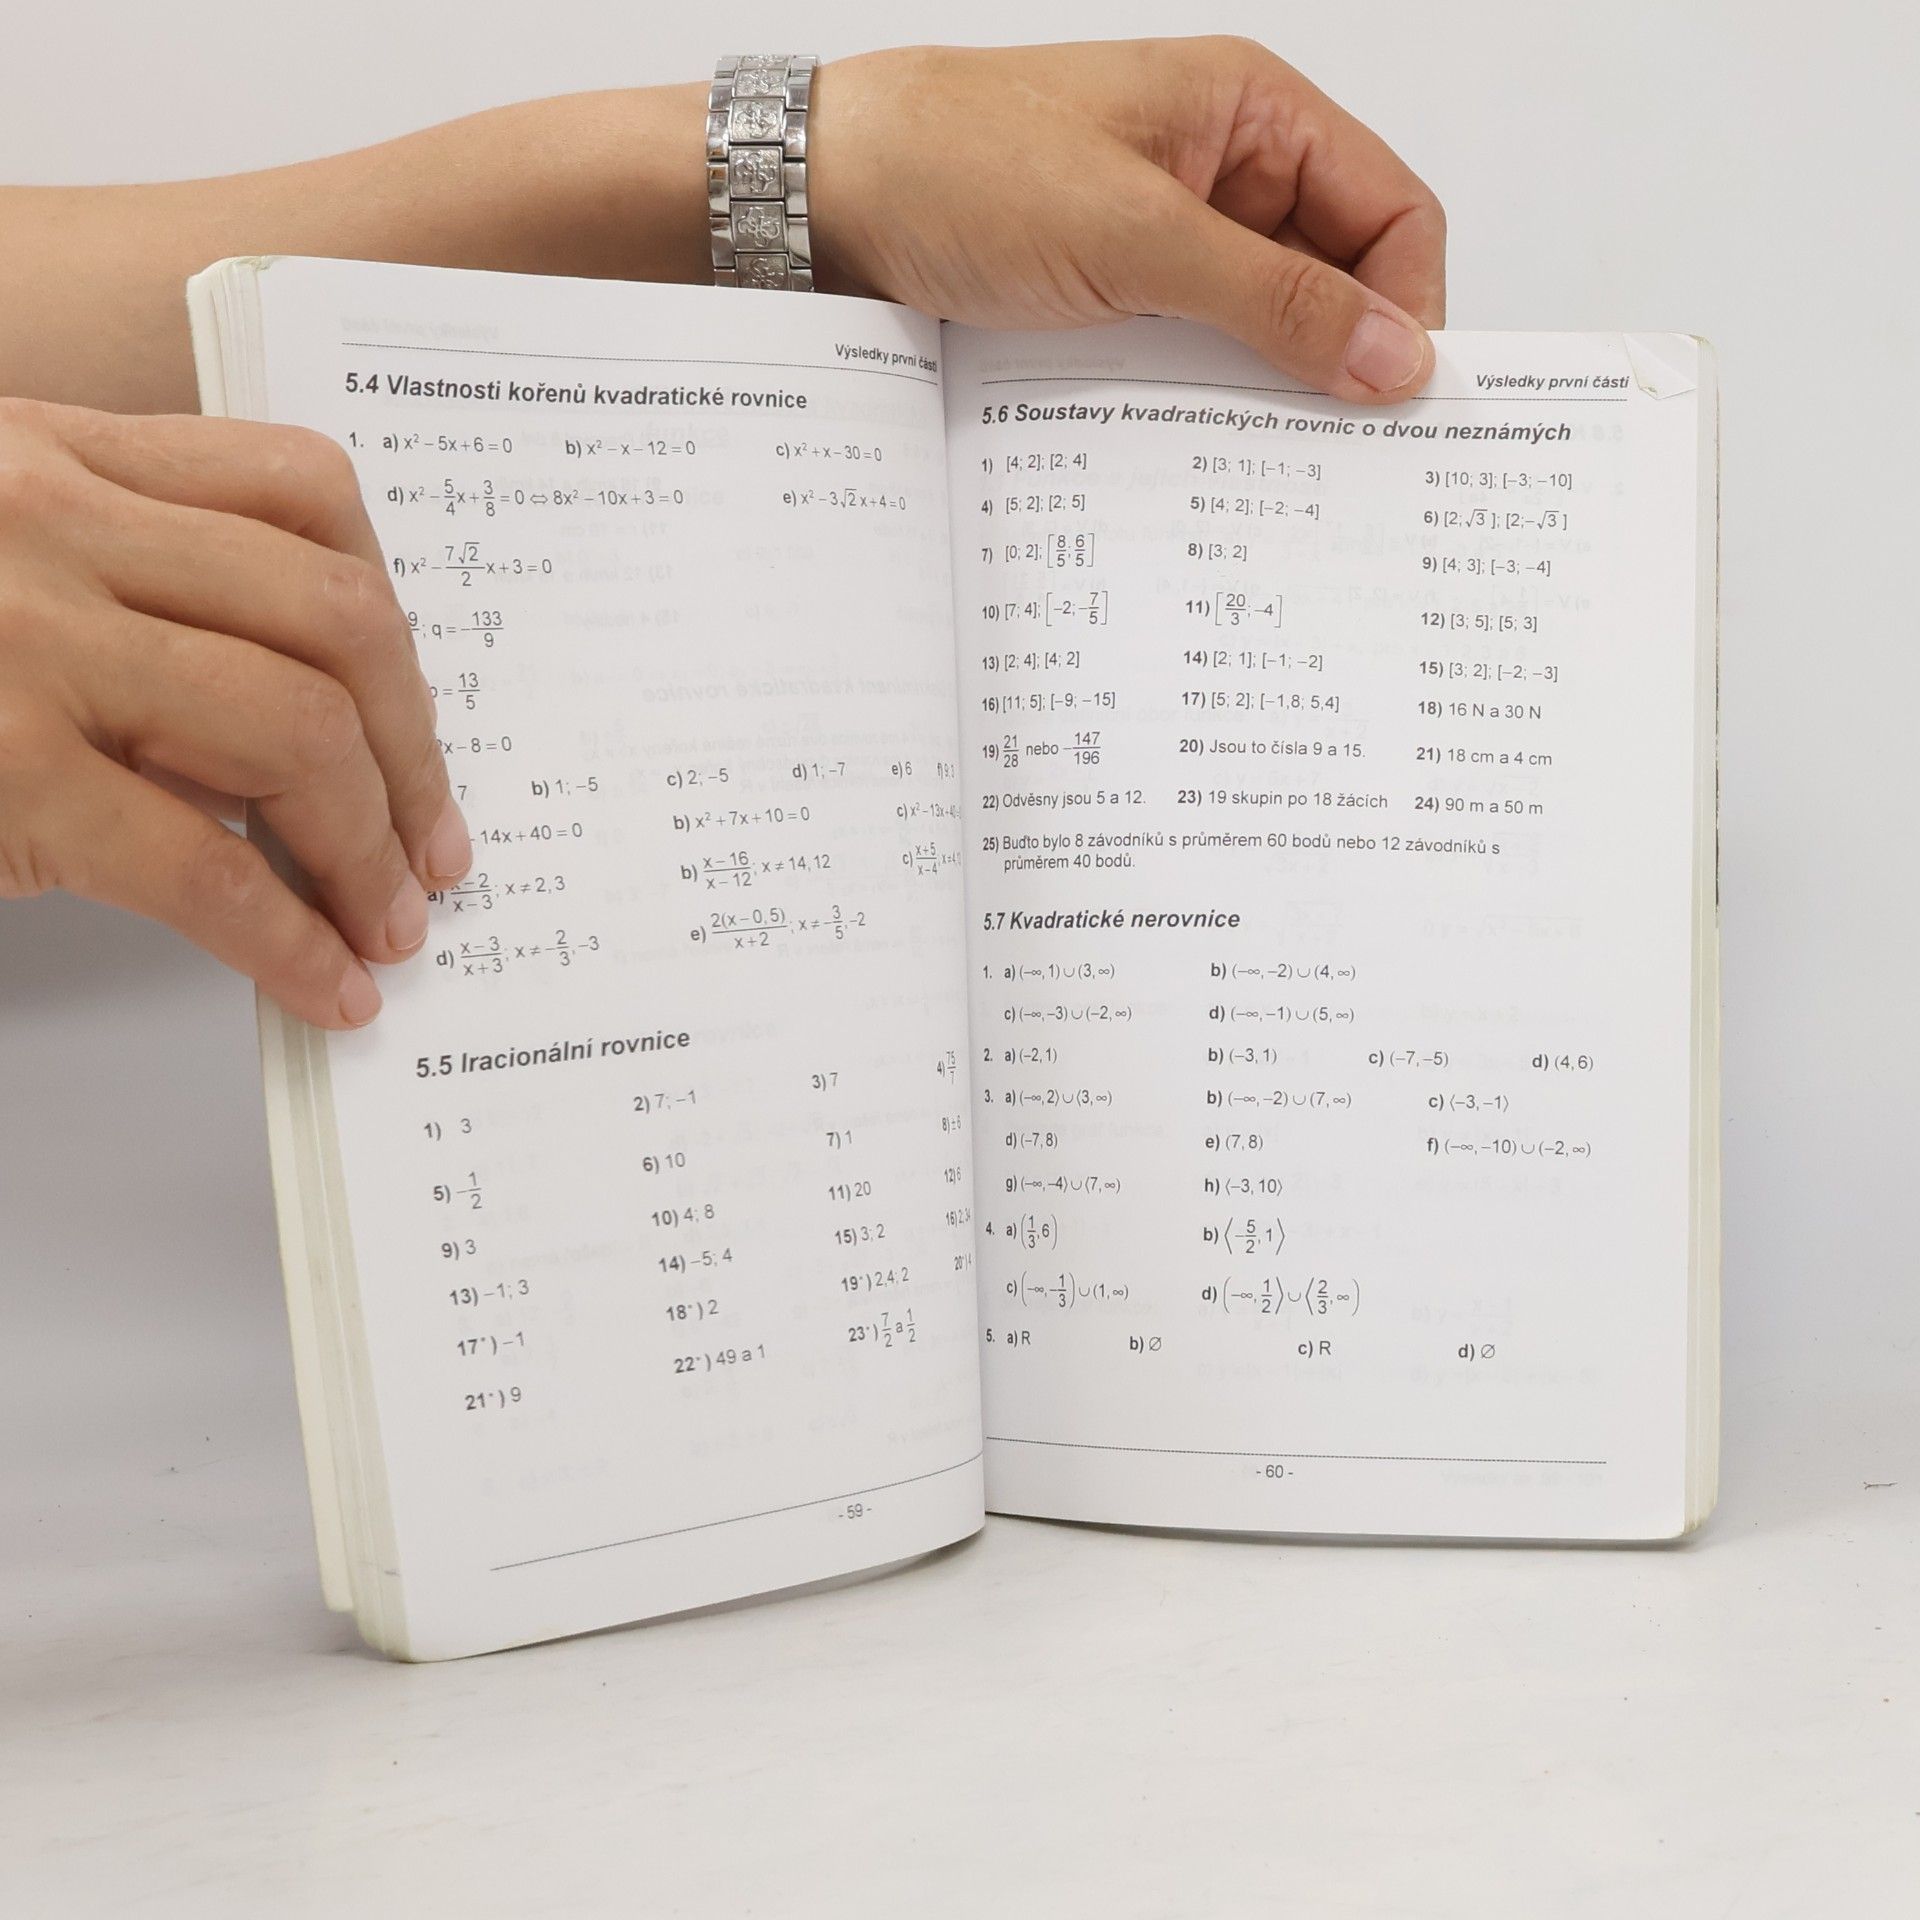 Výsledky první části
5.4 Vlastnosti kořenů kvadratické rovnice
1. a) x² – 5x + 6 = 0 b) x² – x – 12 = 0 c) x² + x – 30 = 0
d) x² – 5/4 x + 3/8 = 0 ⇔ 8x² – 10x + 3 = 0 e) x² – 3√2 x + 4 = 0
f) x² – 7√2/2 x + 3 = 0
; q = – 133/9
= 13/5
x – 8 = 0
7 b) 1; –5 c) 2; –5 d) 1; –7 e) 6
14x + 40 = 0 b) x² + 7x + 10 = 0
a) x–2/x–3; x ≠ 2, 3 b) x–16/x–12; x ≠ 14, 12 c) x+5/x–4
d) x–3/x+3; x ≠ –2/3, –3 e) 2(x–0,5)/x+2; x ≠ –3/5, –2
5.5 Iracionální rovnice
1) 3 2) 7; –1 3) 7 4) 75/7
5) –1/2 6) 10 7) 1 8) ±6
9) 3 10) 4; 8 11) 20 12) 6
13) –1; 3 14) –5; 4 15) 3; 2
17*) –1 18*) 2 19*) 2,4; 2 20*) 4
21*) 9 22*) 49 a 1 23*) 7/2 a 1/2
- 59 -
Výsledky první části
5.6 Soustavy kvadratických rovnic o dvou neznámých
1) [4; 2]; [2; 4] 2) [3; 1]; [–1; –3] 3) [10; 3]; [–3; –10]
4) [5; 2]; [2; 5] 5) [4; 2]; [–2; –4] 6) [2; √3]; [2; –√3]
7) [0; 2]; [8/5; 6/5] 8) [3; 2] 9) [4; 3]; [–3; –4]
10) [7; 4]; [–2; –7/5] 11) [20/3; –4] 12) [3; 5]; [5; 3]
13) [2; 4]; [4; 2] 14) [2; 1]; [–1; –2] 15) [3; 2]; [–2; –3]
16) [11; 5]; [–9; –15] 17) [5; 2]; [–1,8; 5,4] 18) 16 N a 30 N
19) 21/28 nebo –147/196 20) Jsou to čísla 9 a 15. 21) 18 cm a 4 cm
22) Odvěsny jsou 5 a 12. 23) 19 skupin po 18 žácích 24) 90 m a 50 m
25) Buďto bylo 8 závodníků s průměrem 60 bodů nebo 12 závodníků s
průměrem 40 bodů.
5.7 Kvadratické nerovnice
1. a) (–∞, 1) ∪ (3, ∞) b) (–∞, –2) ∪ (4, ∞)
c) (–∞, –3) ∪ (–2, ∞) d) (–∞, –1) ∪ (5, ∞)
2. a) (–2, 1) b) (–3, 1) c) (–7, –5) d) (4, 6)
3. a) (–∞, 2⟩ ∪ ⟨3, ∞) b) (–∞, –2) ∪ (7, ∞) c) ⟨–3, –1⟩
d) (–7, 8) e) (7, 8) f) (–∞, –10) ∪ (–2, ∞)
g) (–∞, –4⟩ ∪ ⟨7, ∞) h) ⟨–3, 10⟩
4. a) (1/3, 6) b) ⟨–5/2, 1⟩
c) (–∞, –1/3) ∪ (1, ∞) d) (–∞, 1/2⟩ ∪ ⟨2/3, ∞)
5. a) R b) ∅ c) R d) ∅
- 60 -